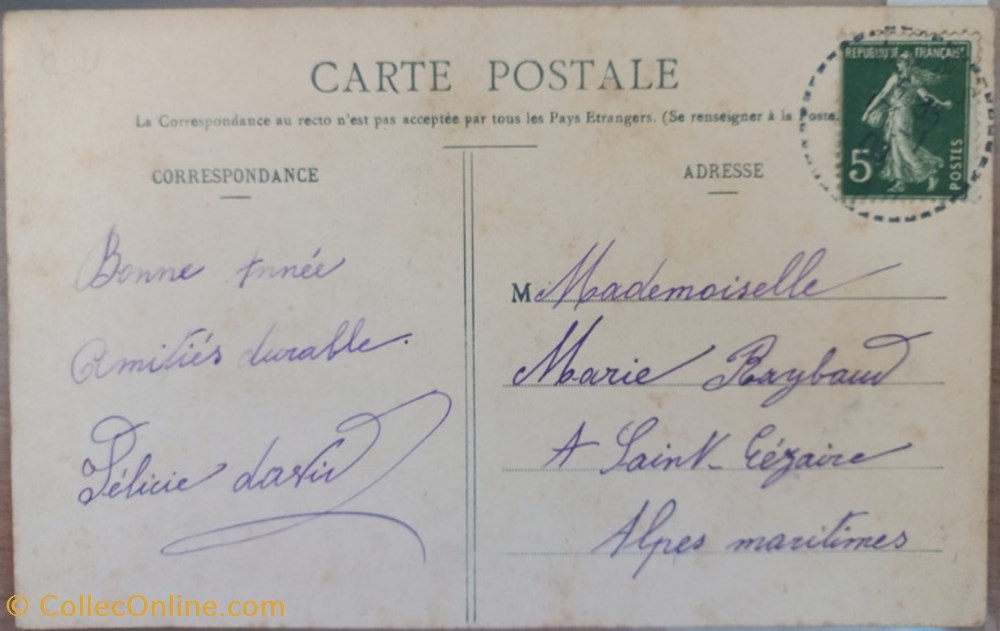 CARTE POSTALE
La Correspondance au recto n'est pas acceptée par tous les Pays Etrangers. (Se renseigner à la Poste.
CORRESPONDANCE
Bonne Année
Amitiés durable.
Félicie david
ADRESSE
M Mademoiselle
Marie Raybaud
A Saint-Cézaire
Alpes maritimes
REPUBLIQUE FRANÇAISE
5
POSTES
© CollecOnline.com